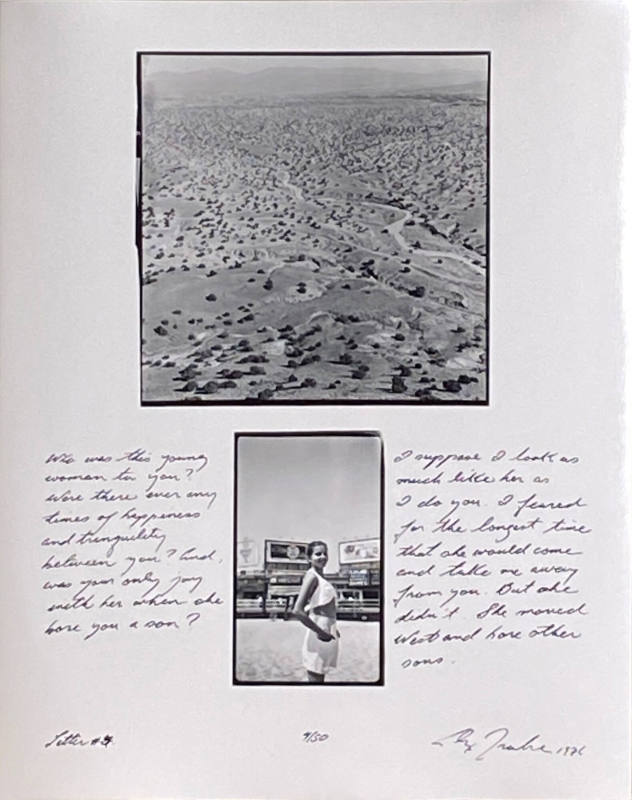 Who was this young
woman to you?
Were there ever any
times of happiness
and tranquility
between you? And,
was your only joy
with her when she
bore you a son?
I suppose I look as
much like her as
I do you. I feared
for the longest time
that she would come
and take me away
from you. But she
didn't. She moved
West and bore other
sons.
Letter #
9/50
1976